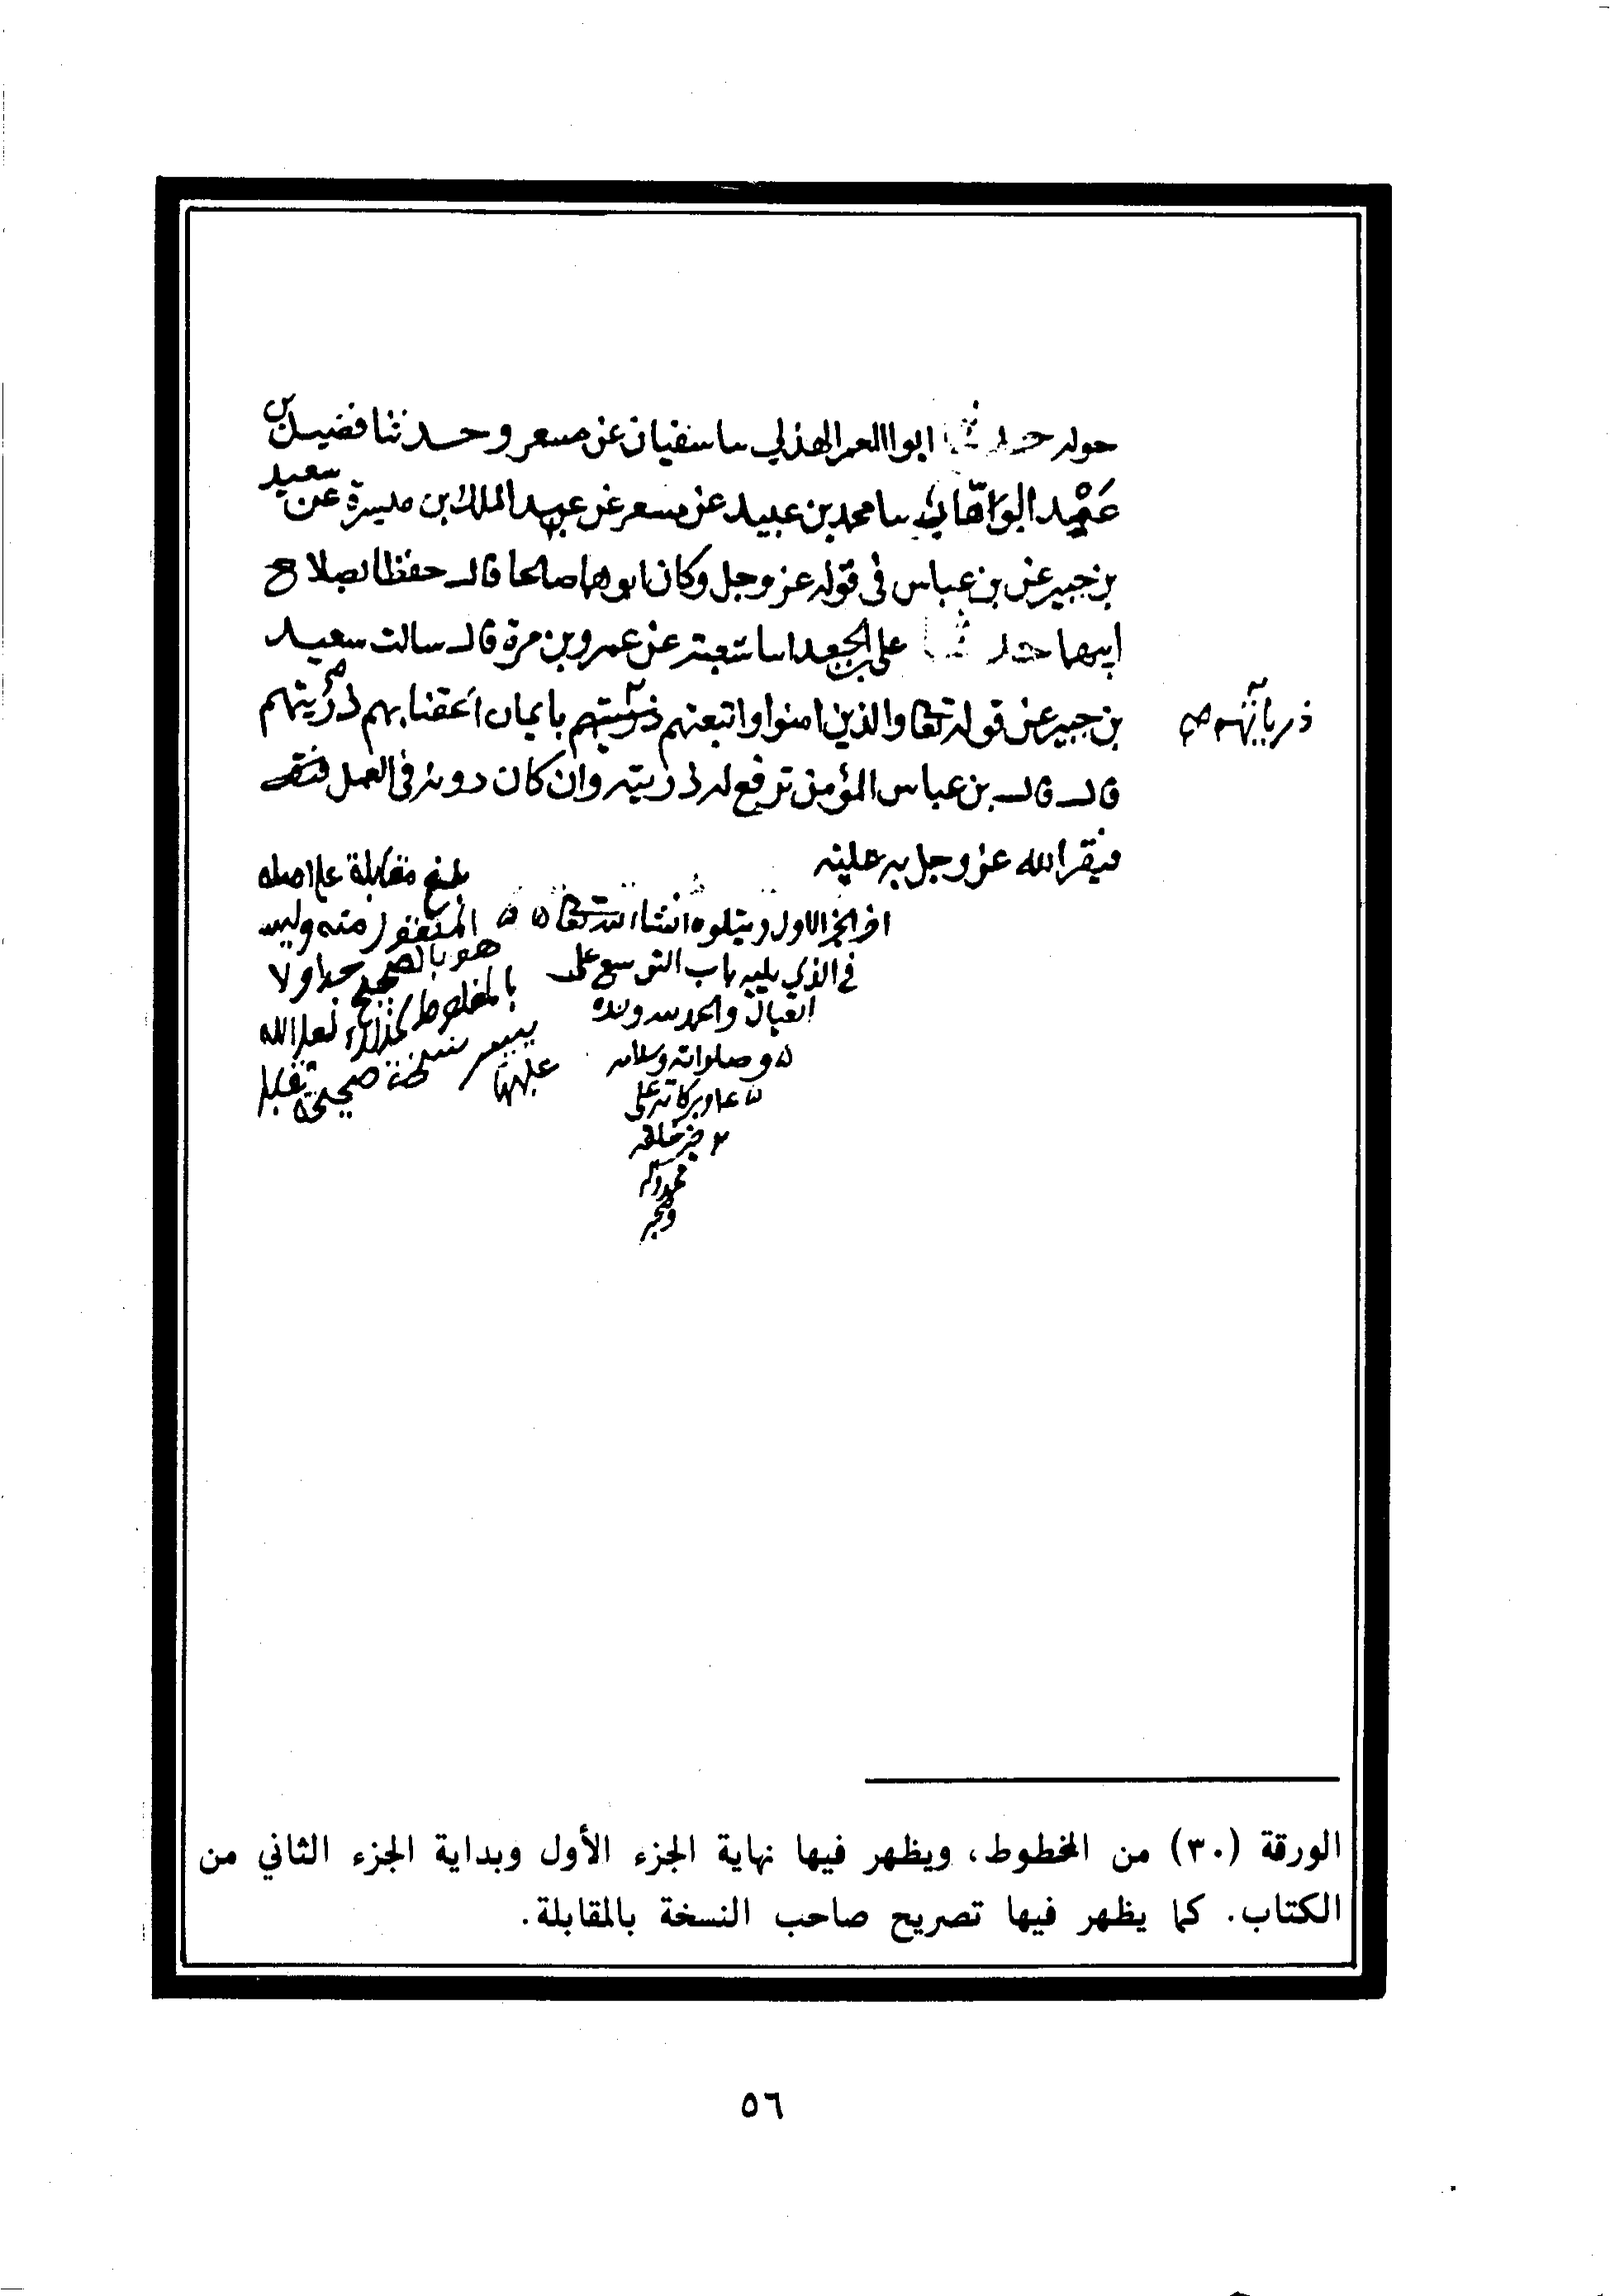 حوله حدثنا ابو المعمر الهذلي سا سفيان عن مسعر وحدثنا فضيل بن
عبد الوهاب سا محمد بن عبيد عن مسعر عن عبد الملك بن ميسرة عن سعيد
بن جبير عن بن عباس في قوله عز وجل وكان ابوهما صالحا قال حفظا بصلاح
ابيهما حدثنا علي بن الجعد انا شعبة عن عمرو بن مرة قال سالت سعيد
بن جبير عن قوله تعالى والذين امنوا واتبعتهم ذريتهم بايمان الحقنا بهم ذريتهم
ذرياتهم صح
قال قال بن عباس المؤمن ترفع له ذريته وان كان دونه في العمل
فيقر الله عز وجل به عينه
اخر الجز الاول ويتلوه انشا الله تعالى
في الذي يليه باب التوسع على
العيال والحمد لله وحده
وصلواته وسلامه
وبركاته على
خير خلقه
محمد واله
بلغ مقابلة على اصله
المنقول منه وليس
هو بالصحيح جدا ولا
بالمغلوط كذلك لعل الله
ييسر نسخة صحيحة تقابل
عليها
الورقة (٣٠) من المخطوط، ويظهر فيها نهاية الجزء الأول وبداية الجزء الثاني من
الكتاب. كما يظهر فيها تصريح صاحب النسخة بالمقابلة.
٥٦